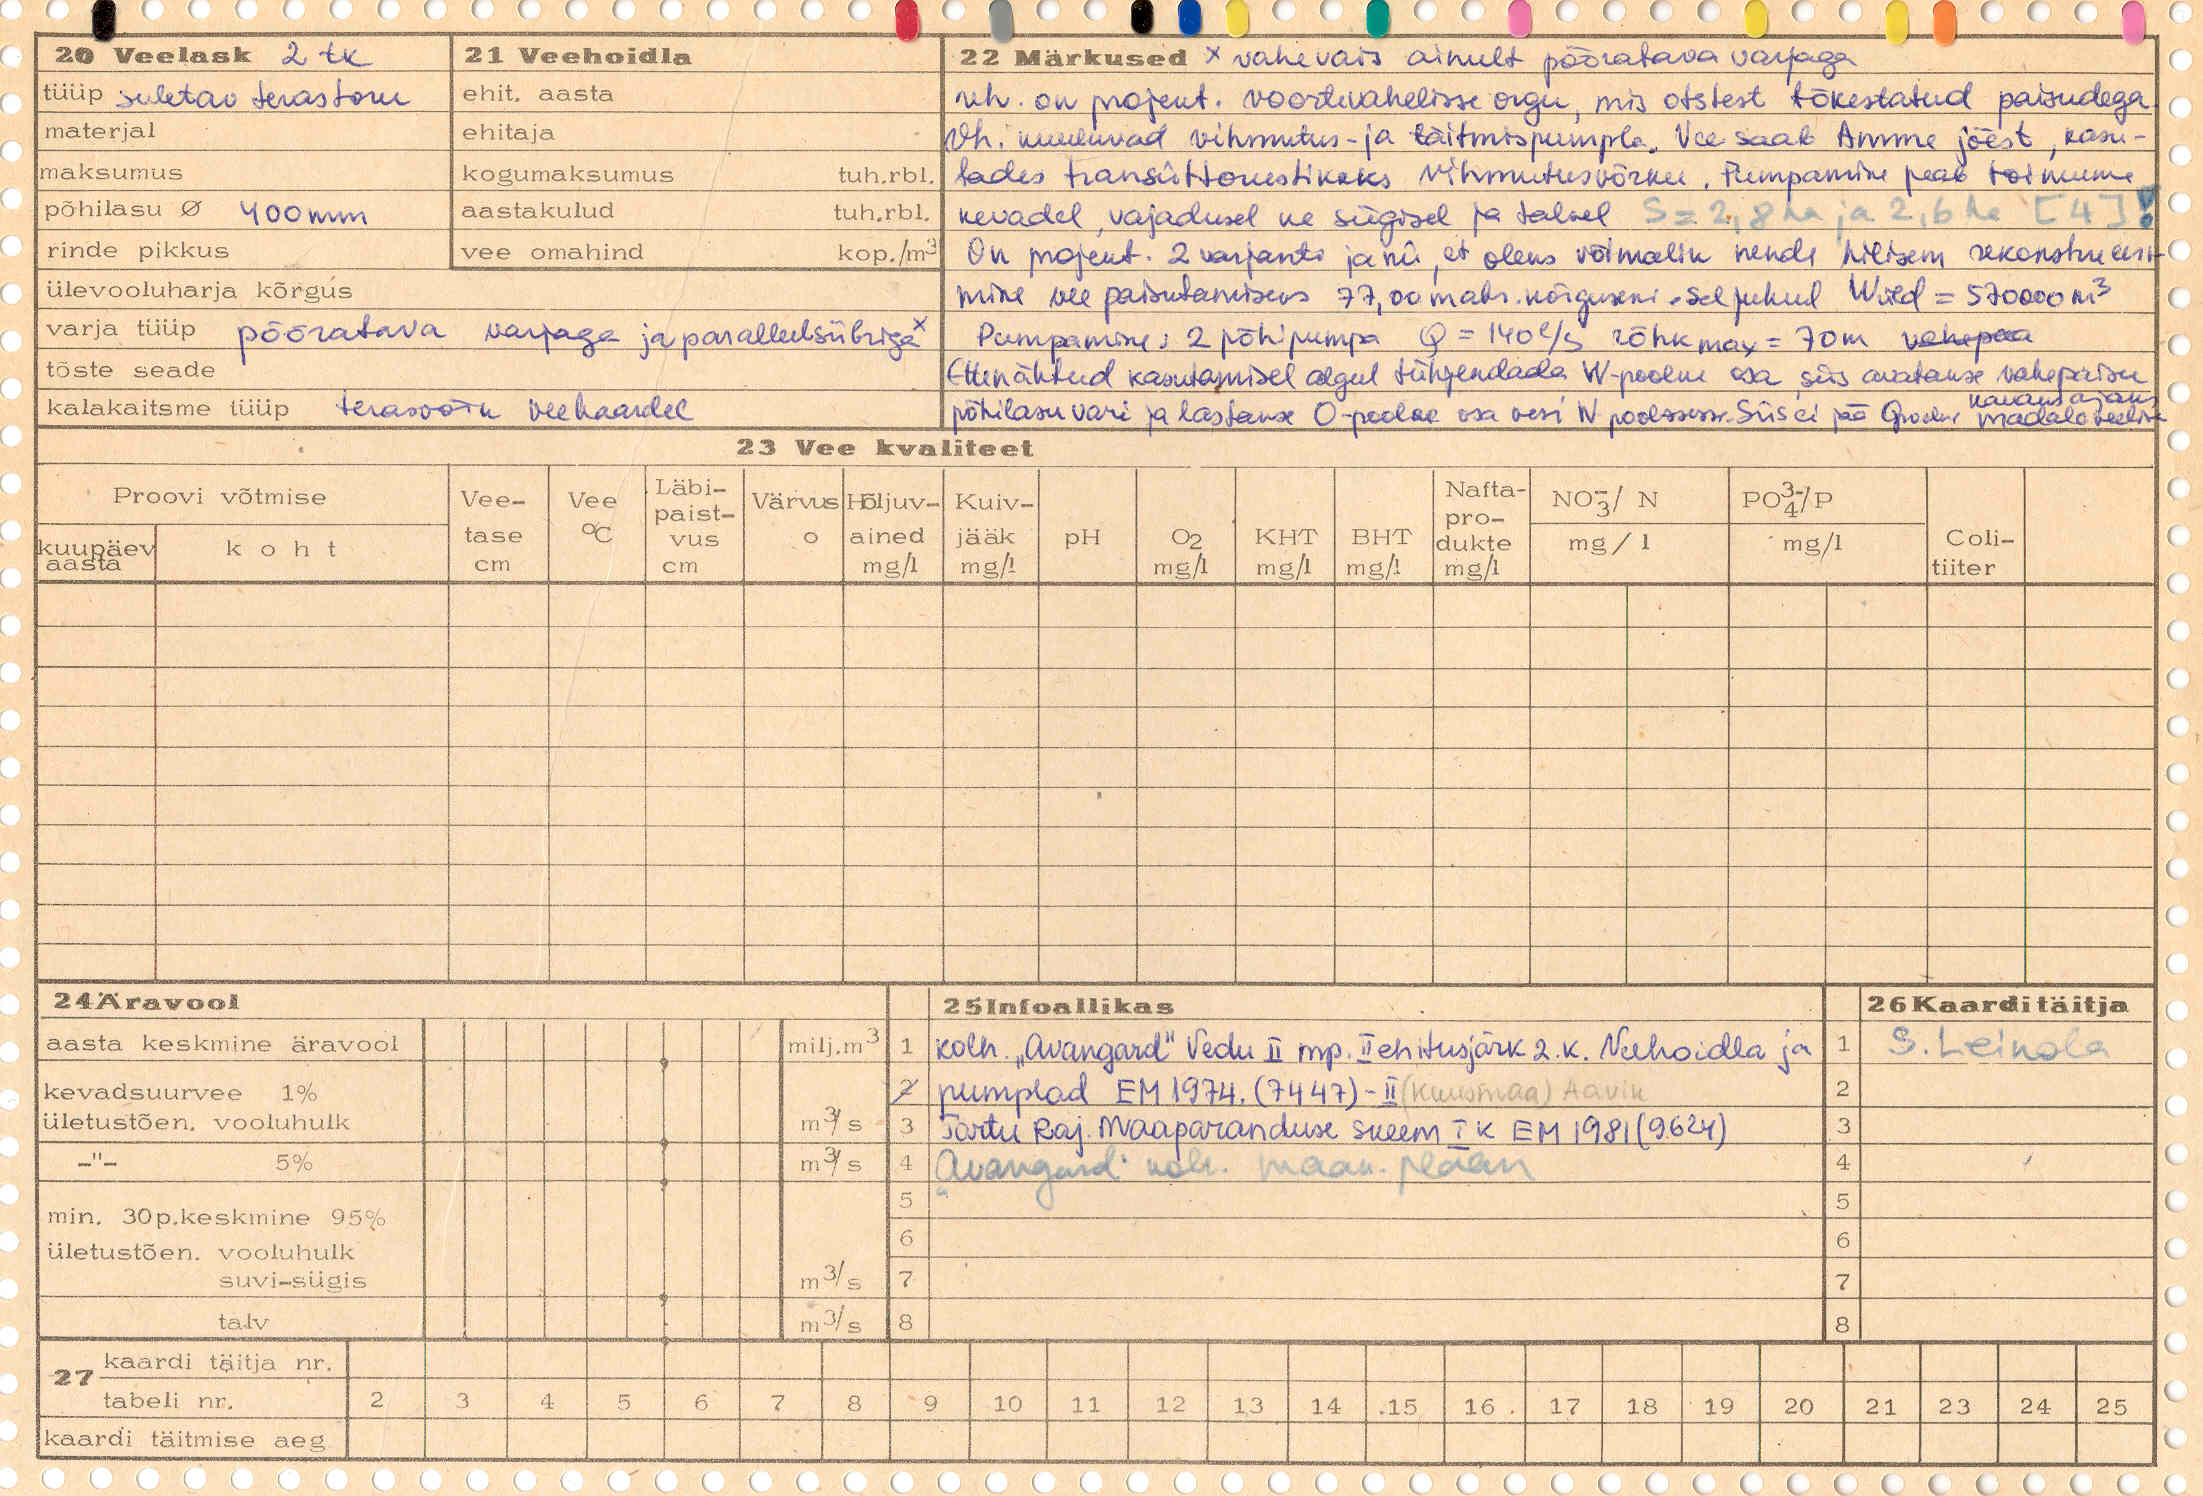 20 Veelask 2 tk
tüüp suletav terastoru
materjal
maksumus
põhilasu Ø 400mm
rinde pikkus
ülevooluharja kõrgus
varja tüüp pööratava varjaga ja paralleelsiibriga x
tõste seade
kalakaitsme tüüp terasvõrk veehaardel
21 Veehoidla
ehit. aasta
ehitaja
kogumaksumus tuh.rbl.
aastakulud tuh.rbl.
vee omahind kop./m3
22 Märkused x vahevais ainult pööratava varjaga
veh. on projekt. voortevahelisse orgu, mis otstest tõkestatud paisudega
Vh. kuuluvad vihmutus- ja täitmispumpla. Vee saab Amme jõest, kasu-
tades transiittorustikuks vihmutusvõrku. Pumpamine peab toimuma
kevadel, vajadusel ka sügisel ja talvel S = 2,8 ha ja 2,6 ha [4]!
On projekt. 2 varjanti ja nii, et oleks võimalik nende hilisem rekonstrueeri-
mine vee paisutamiseks 77,00 mabs. kõrguseni. Sel juhul Wüld = 570000 m3
Pumpamine: 2 põhipumpa Q = 140 l/s rõhk max = 70m vahepea
Ettenähtud kasutamisel algul tühjendada W-poolne osa, siis avatakse vahepaisu
põhilasu vari ja lastakse O-poolse osa vesi W poolsesse. Siis ei jää O poolne kauaks ajaks madalaveeliseks
23 Vee kvaliteet
Proovi võtmise
kuupäev aasta
koht
Vee- tase cm
Vee °C
Läbi- paist- vus cm
Värvus o
Hõljuv- ained mg/l
Kuiv- jääk mg/l
pH
O2 mg/l
KHT mg/l
BHT mg/l
Nafta- pro- dukte mg/l
NO3-/ N mg/l
PO43-/P mg/l
Coli- tiiter
24 Äravool
aasta keskmine äravool milj.m3
kevadsuurvee 1%
ületustõen. vooluhulk m3/s
-"- 5% m3/s
min. 30p.keskmine 95%
ületustõen. vooluhulk
suvi-sügis m3/s
talv m3/s
25 Infoallikas
1 kolh. „Avangard" Vedu II mp. II ehitusjärk 2.k. Veehoidla ja
2 pumplad EM 1974. (7447) - II (Kuusmaa) Aavik
3 Tartu Raj. Maaparanduse skeem I k EM 1981 (9624)
4 „Avangard" kolh. maak. plaan
5
6
7
8
26 Kaardi täitja
1 S. Leinola
2
3
4
5
6
7
8
27 kaardi täitja nr.
tabeli nr. 2 3 4 5 6 7 8 9 10 11 12 13 14 15 16 17 18 19 20 21 23 24 25
kaardi täitmise aeg